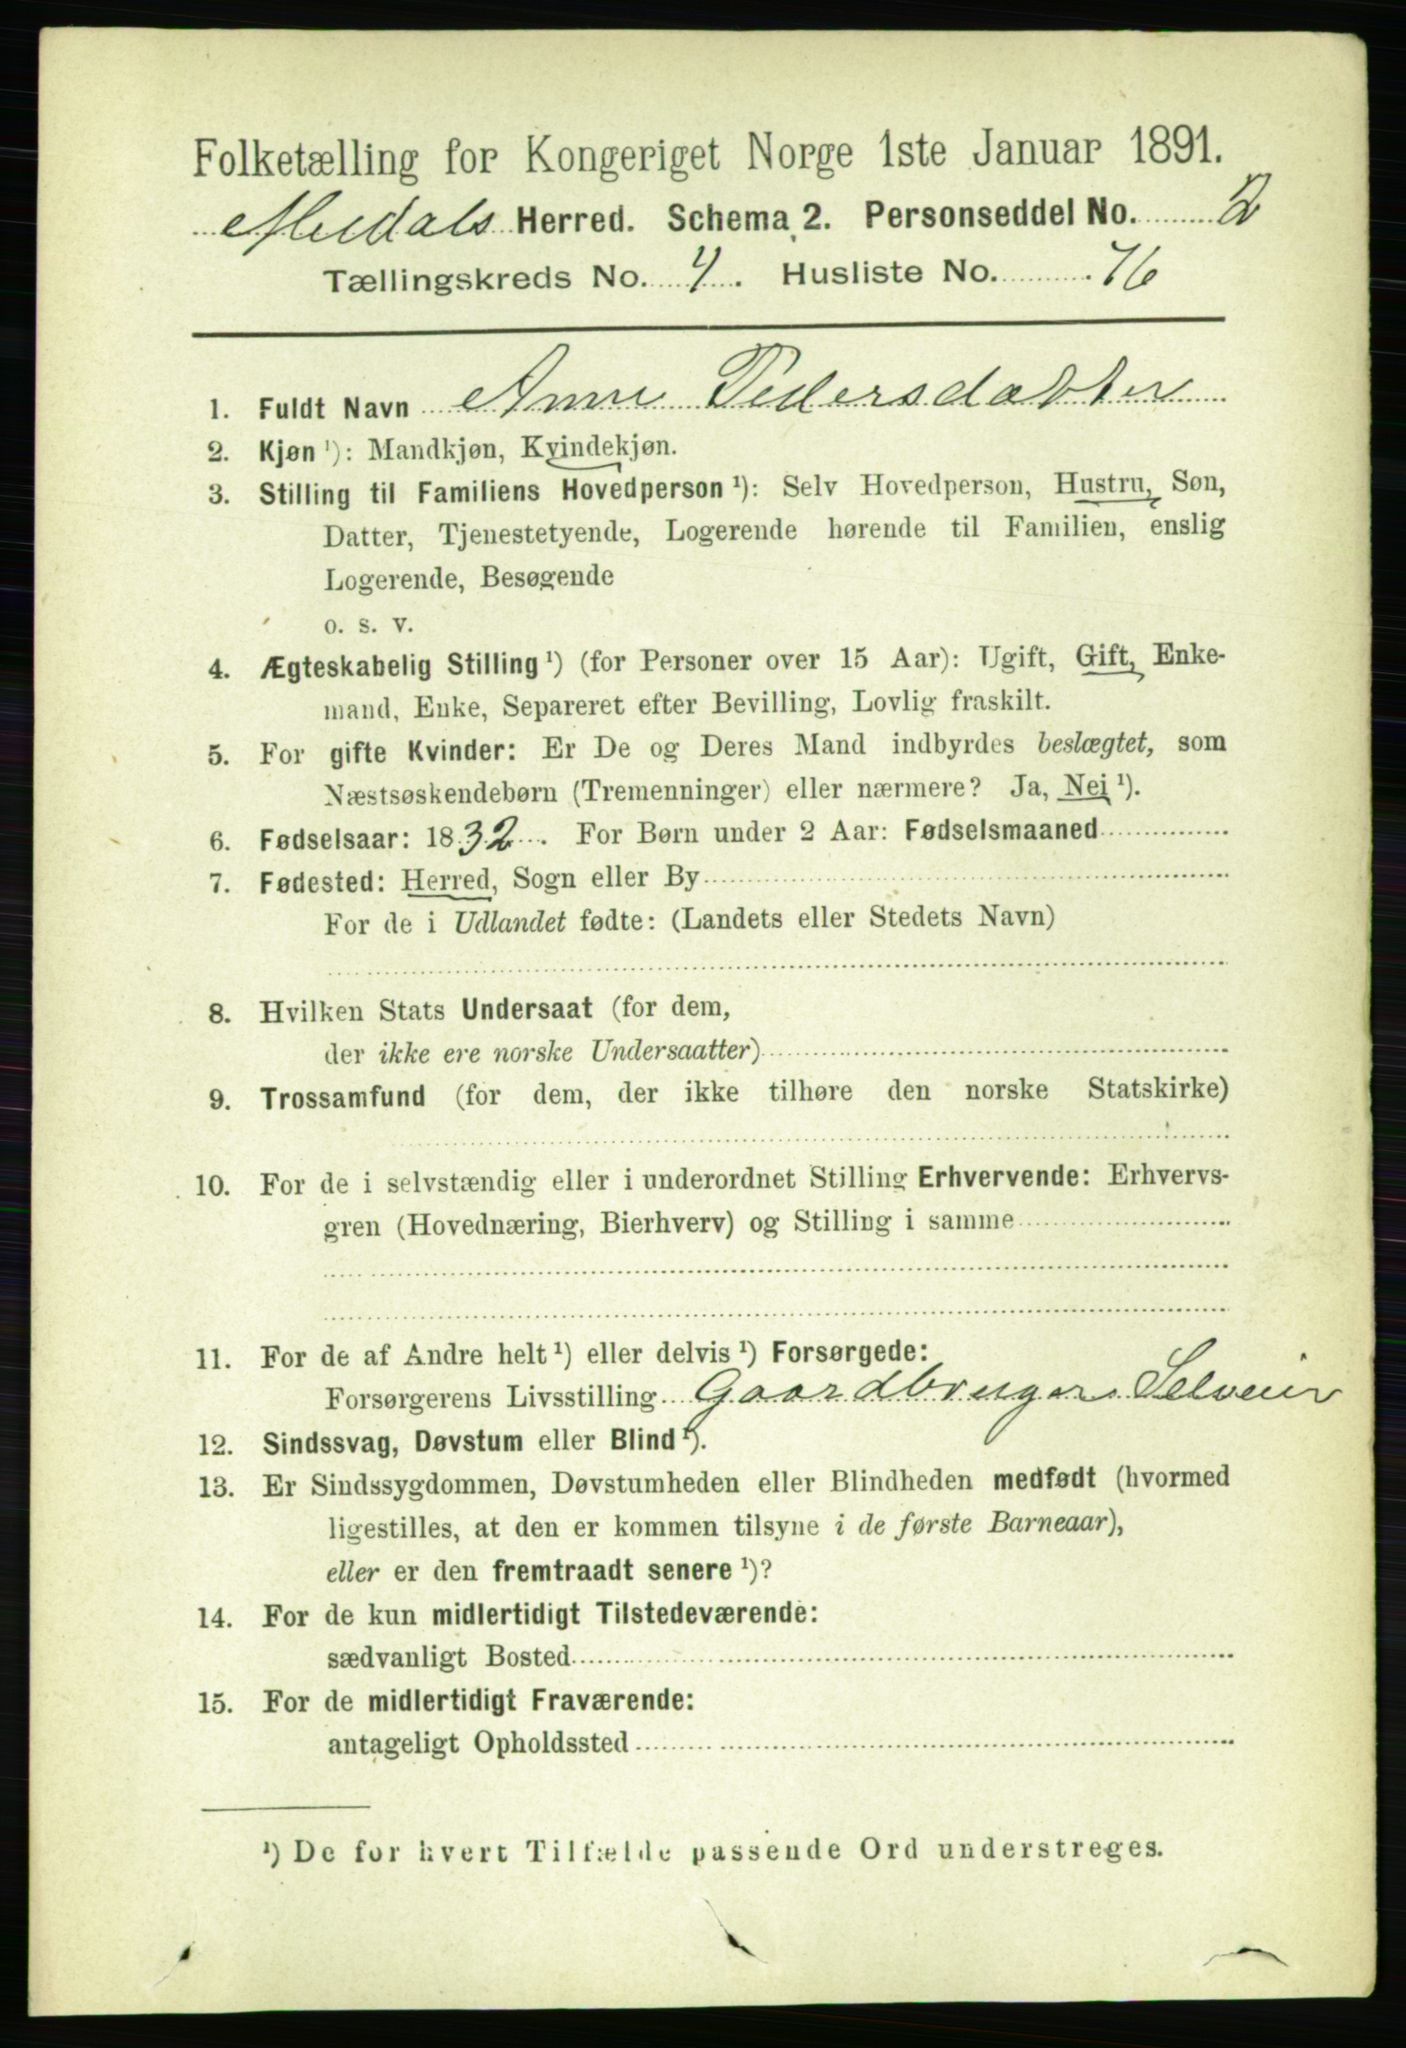 Folketælling for Kongeriget Norge 1ste Januar 1891.
Meldals Herred. Schema 2. Personseddel No. 2
Tællingskreds No. 4. Husliste No. 76
1. Fuldt Navn Anne Pedersdatter
2. Kjøn ¹): Mandkjøn, Kvindekjøn.
3. Stilling til Familiens Hovedperson ¹): Selv Hovedperson, Hustru, Søn,
Datter, Tjenestetyende, Logerende hørende til Familien, enslig
Logerende, Besøgende
o. s. v.
4. Ægteskabelig Stilling ¹) (for Personer over 15 Aar): Ugift, Gift, Enke-
mand, Enke, Separeret efter Bevilling, Lovlig fraskilt.
5. For gifte Kvinder: Er De og Deres Mand indbyrdes beslægtet, som
Næstsøskendebørn (Tremenninger) eller nærmere? Ja, Nei ¹).
6. Fødselsaar: 1832. For Børn under 2 Aar: Fødselsmaaned
7. Fødested: Herred, Sogn eller By
For de i Udlandet fødte: (Landets eller Stedets Navn)
8. Hvilken Stats Undersaat (for dem,
der ikke ere norske Undersaatter)
9. Trossamfund (for dem, der ikke tilhøre den norske Statskirke)
10. For de i selvstændig eller i underordnet Stilling Erhvervende: Erhvervs-
gren (Hovednæring, Bierhverv) og Stilling i samme
11. For de af Andre helt ¹) eller delvis ¹) Forsørgede:
Forsørgerens Livsstilling Gaardbruger Selveier
12. Sindssvag, Døvstum eller Blind ¹).
13. Er Sindssygdommen, Døvstumheden eller Blindheden medfødt (hvormed
ligestilles, at den er kommen tilsyne i de første Barneaar),
eller er den fremtraadt senere ¹)?
14. For de kun midlertidigt Tilstedeværende:
sædvanligt Bosted
15. For de midlertidigt Fraværende:
antageligt Opholdssted
¹) De for hvert Tilfælde passende Ord understreges.